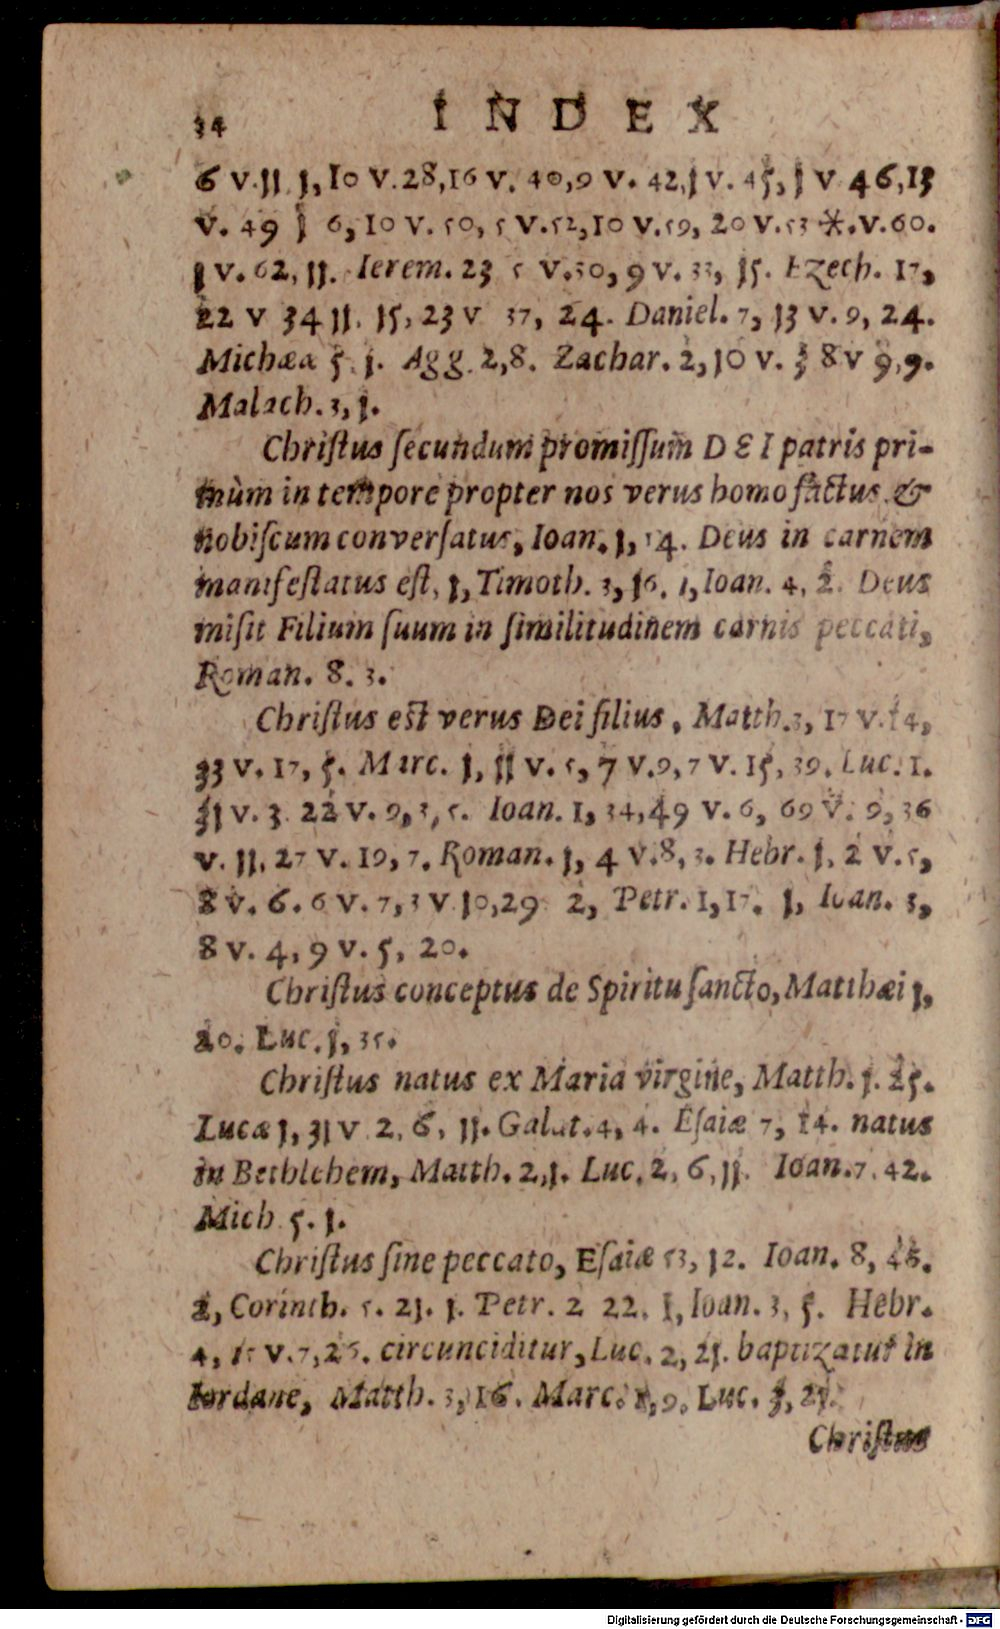 34 INDEX
6 v. 11 1, 10 v. 28, 16 v. 40, 9 v. 42, 1 v. 45, 1 v 46, 13
v. 49 1 6, 10 v. 50, 5 v. 52, 10 v. 59, 20 v. 53 *. v. 60.
1 v. 62, 11. Ierem. 23 5 v. 30, 9 v. 33, 15. Ezech. 17,
22 v 34 11. 15, 23 v 37, 24. Daniel. 7, 13 v. 9, 24.
Michææ 5. 1. Agg. 2,8. Zachar. 2, 10 v. 3 8 v 9, 9.
Malach. 3, 1.
Chriſtus ſecundum promiſſum DEI patris pri-
mùm in tempore propter nos verus homo factus &
nobiſcum converſatus, Ioan. 1, 14. Deus in carnem
manifeſtatus eſt, 1, Timoth. 3, 16. 1, Ioan. 4, 2. Deus
miſit Filium ſuum in ſimilitudinem carnis peccati,
Roman. 8. 3.
Chriſtus eſt verus Dei filius, Matth. 3, 17 v. 14,
33 v. 17, 5. Marc. 1, 11 v. 5, 7 v. 9, 7 v. 15, 39. Luc. 1.
31 v. 3 22 v. 9, 3, 5. Ioan. 1, 34, 49 v. 6, 69 v. 9, 36
v. 11, 27 v. 19, 7. Roman. 1, 4 v. 8, 3. Hebr. 1, 2 v. 5,
8 v. 6. 6 v. 7, 3 v 10, 29 2, Petr. 1, 17. 1, Ioan. 3,
8 v. 4, 9 v. 5, 20.
Chriſtus conceptus de Spiritu ſancto, Matthæi 1,
20. Luc. 1, 35.
Chriſtus natus ex Maria virgine, Matth. 1. 25.
Lucæ 1, 31 v 2, 6, 11. Galat. 4, 4. Eſaiæ 7, 14. natus
in Bethlehem, Matth. 2, 1. Luc. 2, 6, 11. Ioan. 7. 42.
Mich 5. 1.
Chriſtus ſine peccato, Eſaiæ 53, 12. Ioan. 8, 46.
2, Corinth. 5. 21. 1. Petr. 2 22. 1, Ioan. 3, 5. Hebr.
4, 15 v. 7, 26. circunciditur, Luc. 2, 21. baptizatur in
Iordane, Matth. 3, 16. Marc. 1, 9. Luc. 3, 21.
Chriſtus
Digitalisierung gefördert durch die Deutsche Forschungsgemeinschaft - DFG